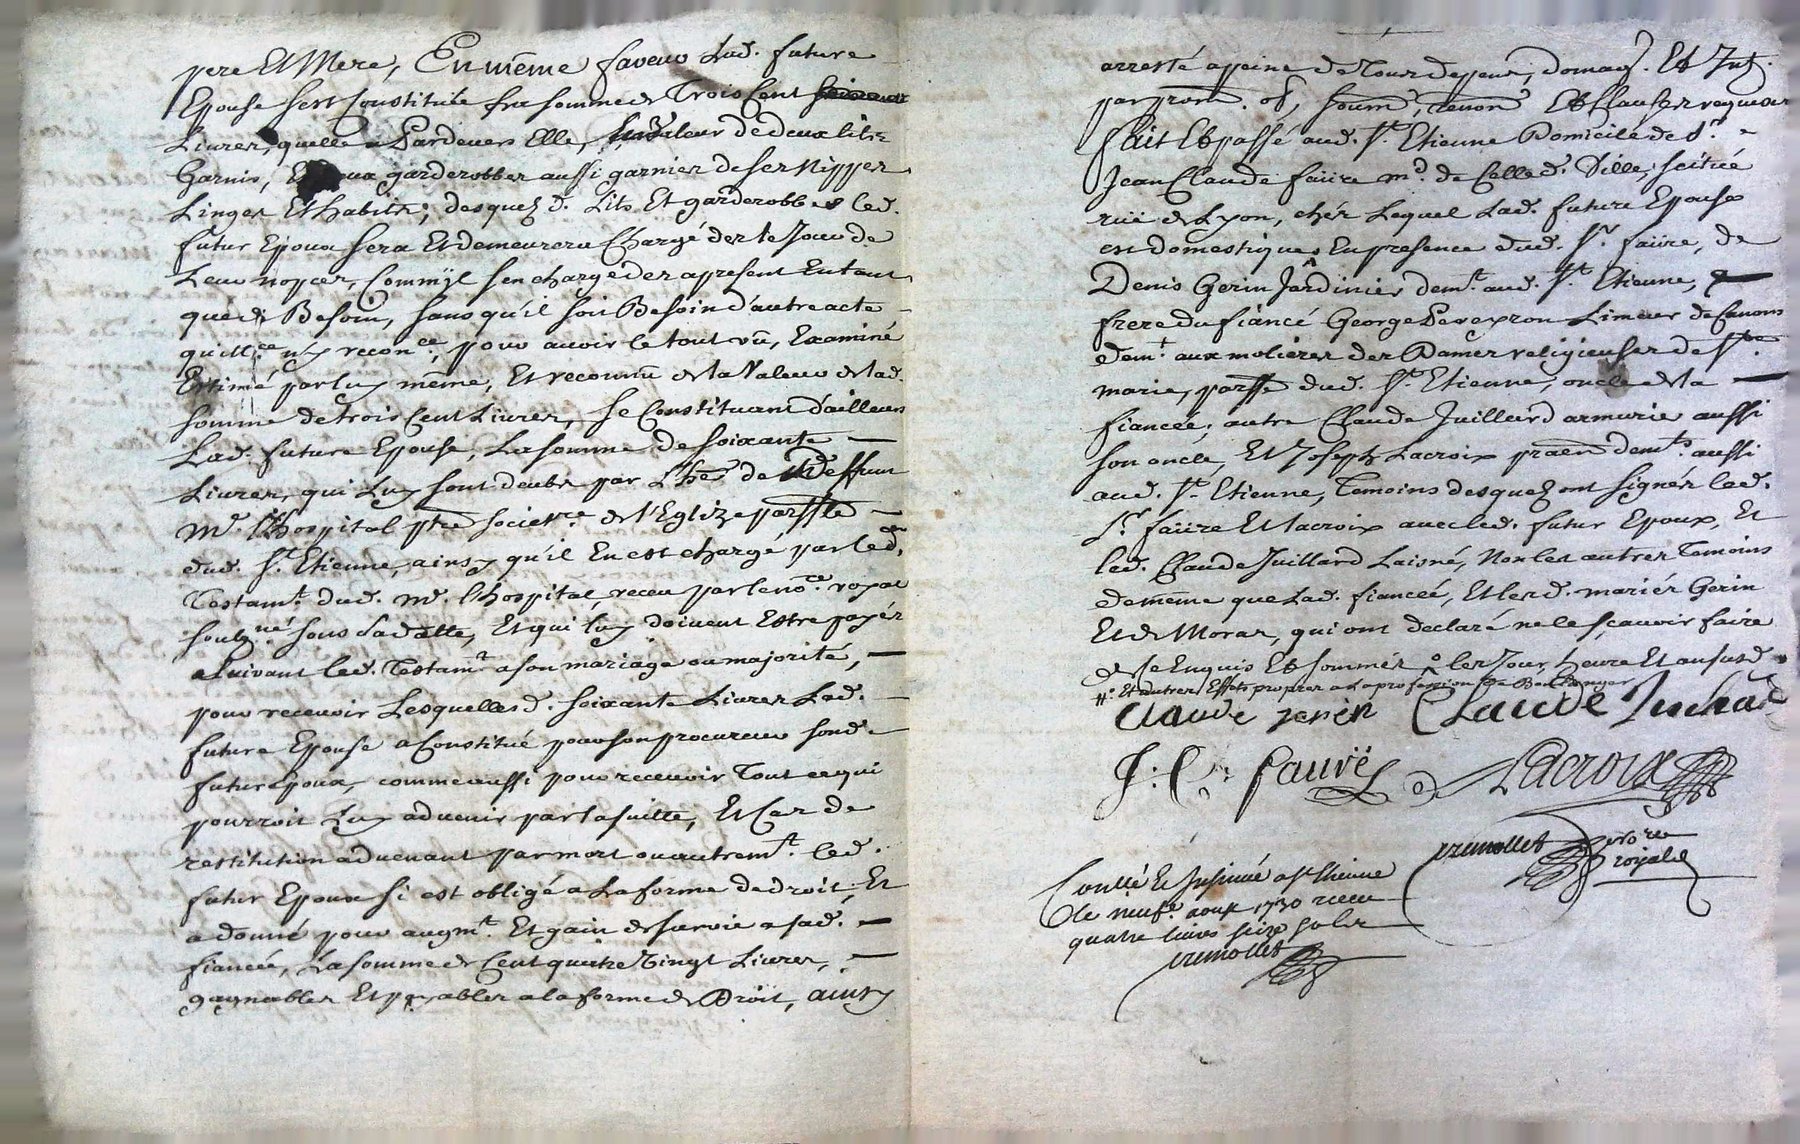 pere Et Mere, En même faveur Lad. future
Epouse sest Constituée la somme de Trois Cent
Livres, quelle a Pardevers Elle, En Valeur de deux lits
Garnis, Et garderobbes aussi garnies de ses Nippes
Linges Et habits; desquels d. Lits Et garderobbes led.
futur Epoux sera Et demeurera Chargé des le Jour de
Leur nopces, Comm'jl sen charge des apresent En tant
que de Besoin, sans qu'il soit Besoin d'autre acte
quitt.ce n'y recon.ce, pour avoir le tout vû, Examiné
Estimé par luy même, Et reconnu de la Valeur de lad.
somme de trois Cent Livres, se Constituant d'ailleurs
Lad. future Epouse, La somme de soixante
Livres, qui Luy sont deubs par L'he. de deffunt
Mre. l'hospital ptre societre. de l'Eglize parsslle
dud. St. Etienne, ainsy qu'il En est chargé par led.
Testamt. dud. Mre. l'hospital, receu par le nore. royal
soubzné sous sa datte, Et qui luy doivent Estre payés
suivant led. Testamt. a son mariage ou majorité,
pour recevoir Lesquelles d. soixante Livres Lad.
future Epouse a Constitué pour son procureur sond.
futur Epoux, comme aussi pour recevoir Tout ce qui
pourroit Luy advenir par la suitte, Et Cas de
restitution advenant par mort ou autremt. led.
futur Epoux si est obligé a La forme de droit, Et
a donné pour augmt. Et gain de survie a sad.
fiancée, La somme de Cent quatre Vingt Livres,
gagnables Et payables a la forme de Droit, ainsy
arresté a peine de Tous depens, domag. Et Jnts.
par prom. obl. soum, renon Et Clauses requises
fait Et passé aud. St. Etienne Domicile de Sr.
Jean Claude faüre md. de Cette d. Ville, scitüé
rüe de Lyon, chés Lequel Lad. future Epouse
est domestique, En presence dud. Sr. faüre, de
Denis Gerin Jardinier demt. aud. St. Etienne,
frere du fiancé George Peyron Limeur de Canons
demt. aux molieres des Dames religieuses de Ste.
marie, parsse dud. St. Etienne, oncle de la
fiancée, autre Claude Juillard armurier aussi
son oncle, Et Joseph Lacroix praen demts. aussi
aud. St. Etienne, Temoins desquels ont signés led.
Sr. faüre Et lacroix avec led. futur Epoux, Et
led. Claude Juillard Laisné, Non les autres Temoins
de même que Lad. fiancée, Et lesd. mariés Gerin
Et de Moras, qui ont declaré ne le sçavoir faire
de ce Enquis Et sommés les Jour, heure Et an susd.
Et autres Effets propres a La profession de Boulanger
Claude jerin Claude Juliard
J. C. fauré Lacroix
cremollet nore
royal
Conllé Et Jnsinué a St Etienne
le neufe. aoust 1730 receu
quatre livres seize sols
cremollet